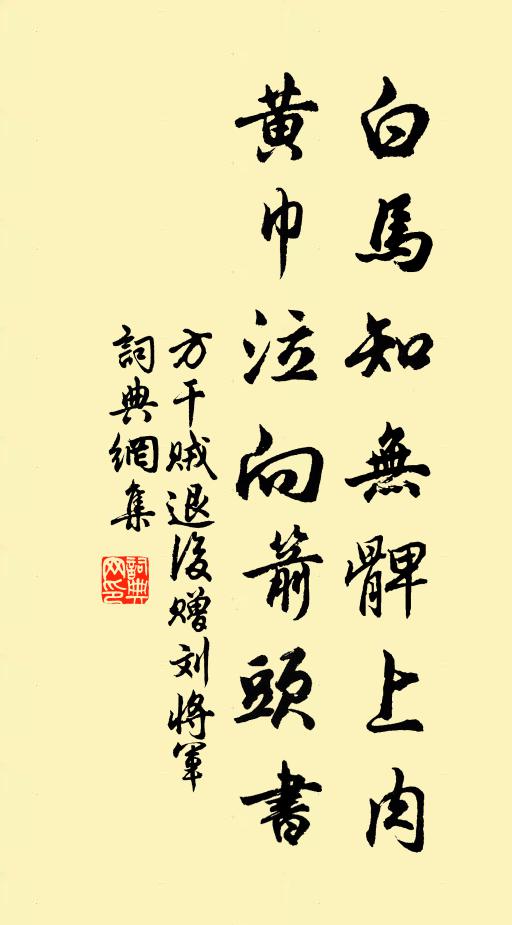 白馬知無髀上肉
黃巾泣向箭頭書
方干賊退後贈刘將軍
詞典網集
詞典
网印